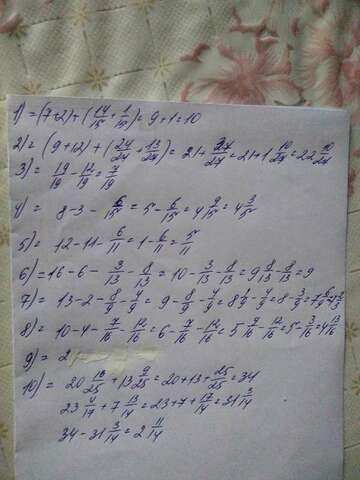 1) = (7+2) + (14/15 + 1/15) = 9+1 = 10
2) = (9+12) + (21/24 + 13/24) = 21 + 34/24 = 21+1 10/24 = 22 10/24
3) = 19/19 - 12/19 = 7/19
4) = 8-3- 6/15 = 5 - 6/15 = 4 9/15 = 4 3/5
5) = 12-11- 6/11 = 1- 6/11 = 5/11
6) = 16-6- 3/13 - 8/13 = 10- 3/13 - 8/13 = 9 8/13 - 8/13 = 9
7) = 13-2- 8/9 - 4/9 = 9- 8/9 - 4/9 = 8 1/9 - 4/9 = 8- 3/9 = 7 6/9 = 7 2/3
8) = 10-4- 7/16 - 12/16 = 6- 7/16 - 12/16 = 5 9/16 - 12/16 = 5- 3/16 = 4 13/16
9) = 2
10) = 20 16/25 + 13 9/25 = 20+13+ 25/25 = 34
23 4/14 + 7 13/14 = 23+7+ 17/14 = 31 3/14
34-31 3/14 = 2 11/14